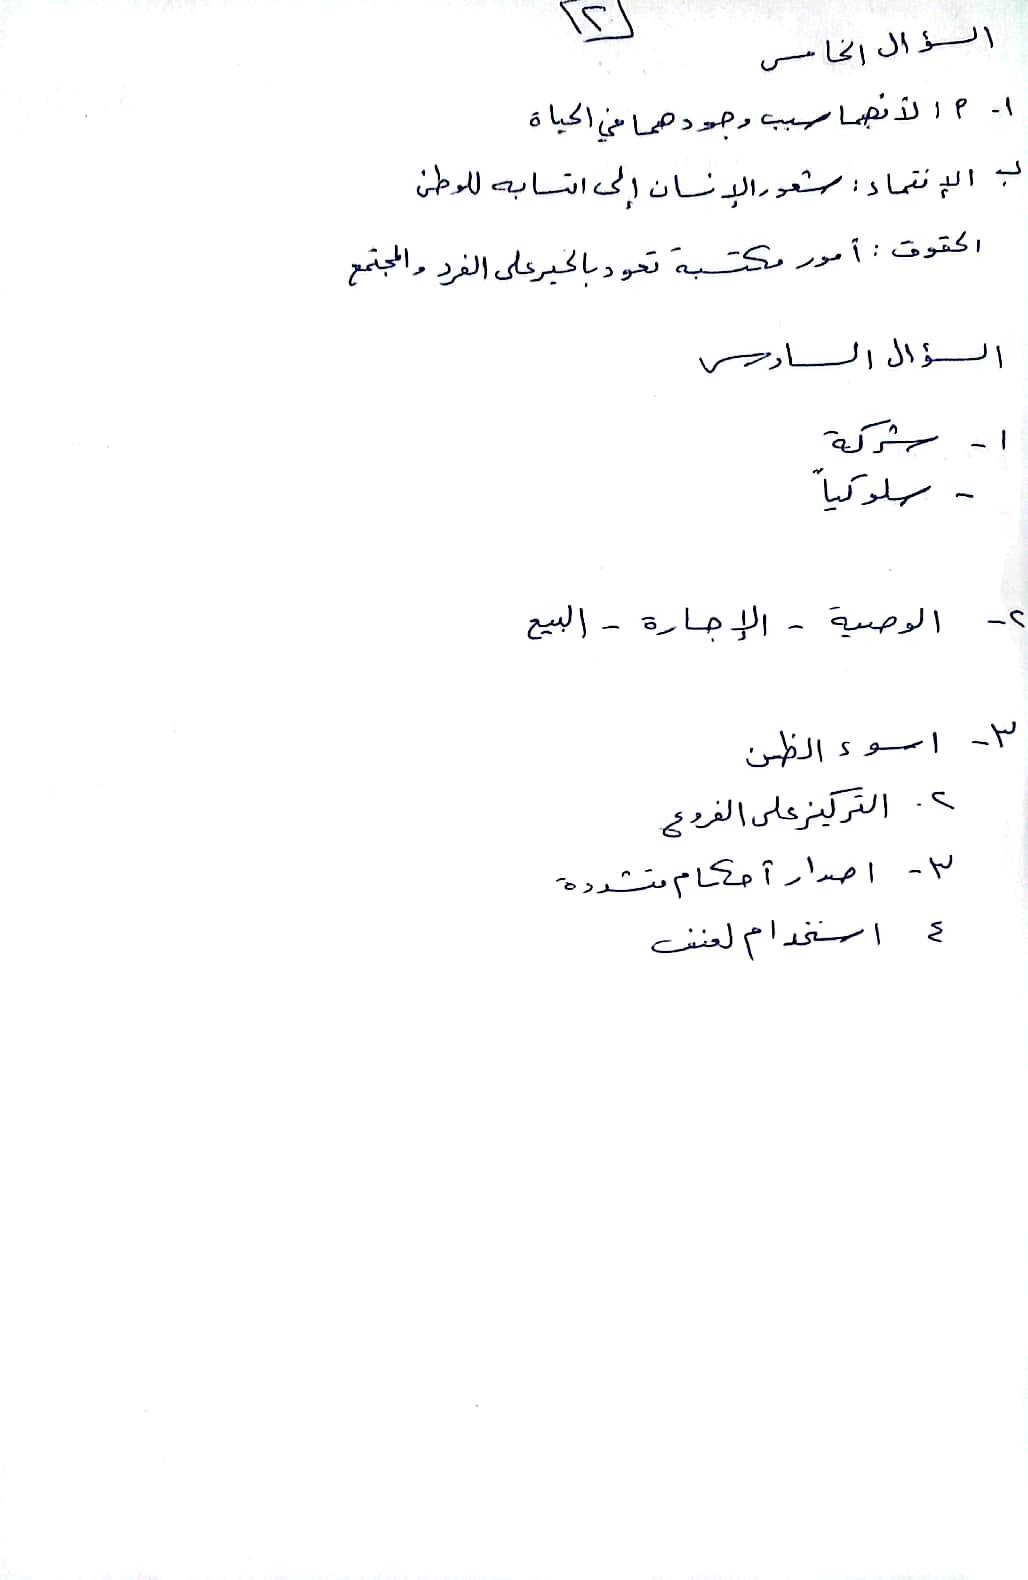 ٢
السؤال الخامس
١- م ا لأنهما سبب وجودهما في الحياة
ب الإنتماء: شعور الإنسان إلى انتسابه للوطن
الحقوق: أمور مكتسبة تعود بالخير على الفرد والمجتمع
السؤال السادس
١- شركة
- سلوكياً
٢- الوصية - الإجارة - البيع
٣- ١ سوء الظن
٢. التركيز على الفروع
٣- اصدار أحكام متشددة
٤ استخدام لعنف